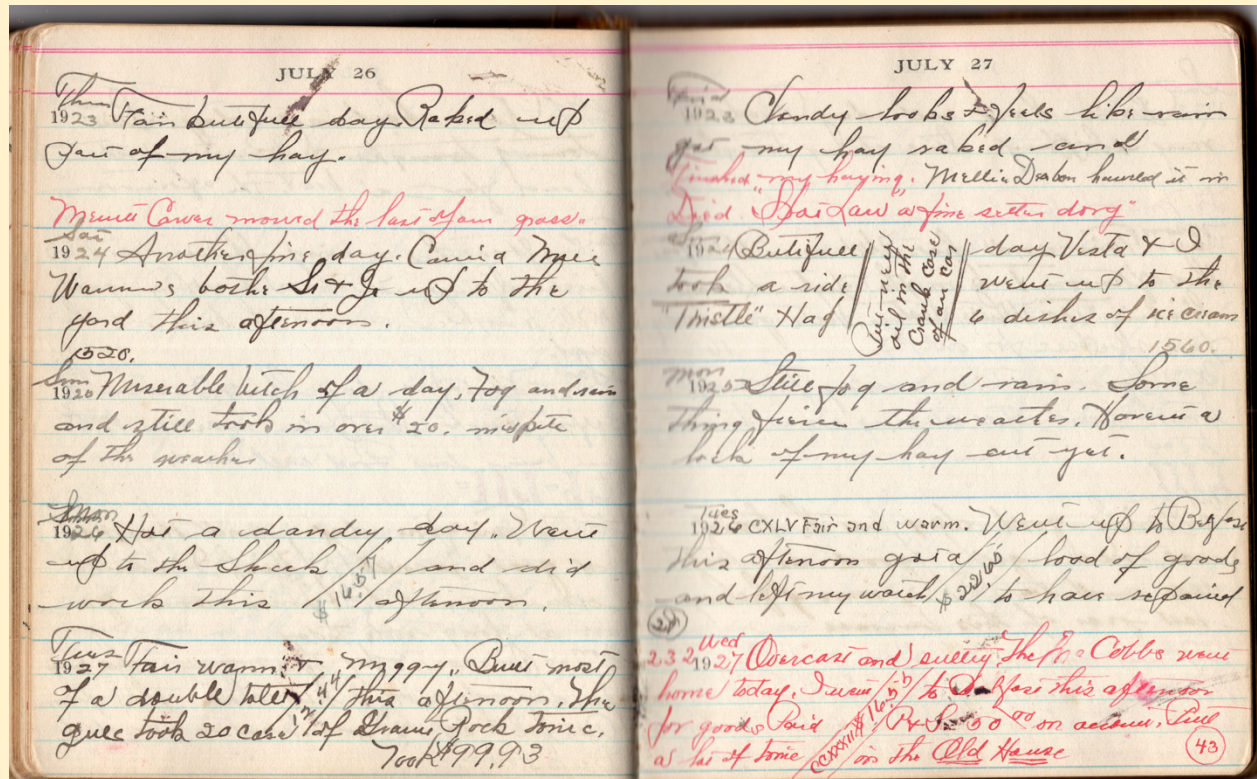 JULY 26
Thur
1923 Fair butifull day. Raked up
part of my hay.
Merritt Carver mowed the last of our grass.
Sat
1924 Another fine day. Carried
up to the
yard this afternoon.
Sun
1925 Miserable bitch of a day. Fog and rain
and still took in over $20. inspite
of the weather
Mon
1926 Has a dandy day. Went
up to the Shack $16.57 and did
work this afternoon.
1927 Fair warm & muggy. Built most
of a double toilet this afternoon. The
gull took 20 case of Granite Rock Tonic.
Took $99.93
JULY 27
Frid
1923 Cloudy looks & feels like rain
got my hay raked and
Finished "my haying." hauled it in
Died. a fine setter dorg"
1924 Butifull day Vesta & I
took a ride went up to the
"Thistle" Had 6 dishes of ice cream
Put new
oil in the
crank case
of our car
1560.
Mon
1925 Still fog and rain. Some
thing fierce the weather. Havent a
lock of my hay cut yet.
Tues
1926 CXLV Fair and warm. Went up to Belfast
this afternoon got a load of goods
and left my watch to have repaired
$22.65
232 Wed
1927 Overcast and sultry. The Cobbs went
home today. I went to Belfast this afternoon
for goods Paid on account. Put
a lot of tonic in the Old House
$16.55
43